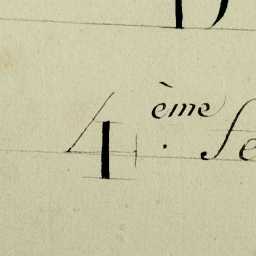 4.ème Se